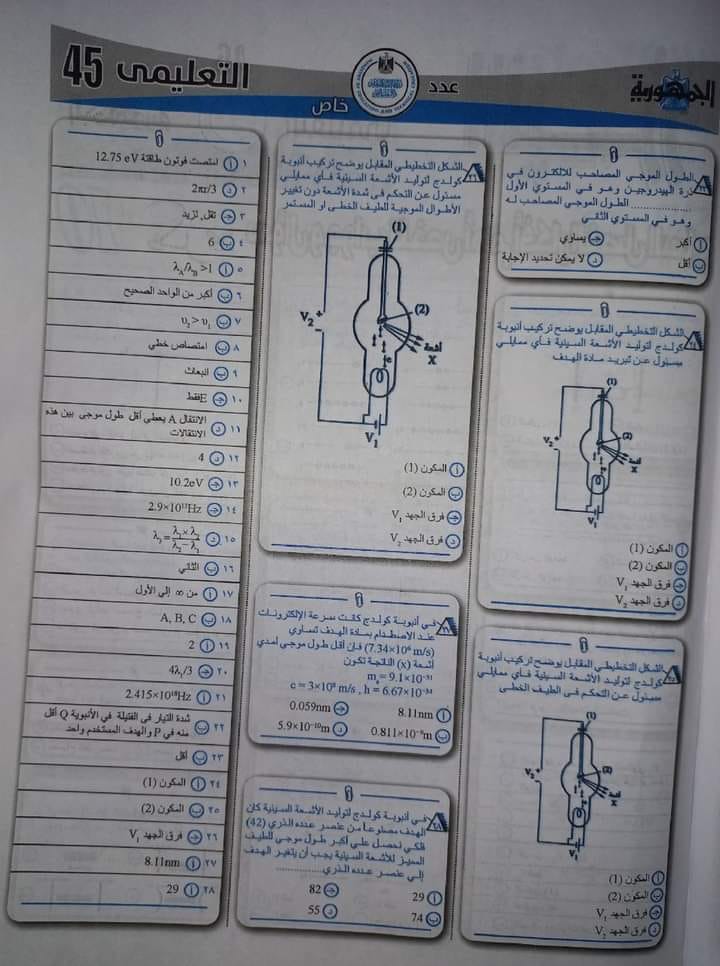 الجمهورية
عدد
خاص
التعليمى 45
الطول الموجي المصاحب للإلكترون في
ذرة الهيدروجين وهو في المستوي الأول
............ الطول الموجي المصاحب له
وهو في المستوي الثاني
أ أكبر
ج يساوي
ب أقل
د لا يمكن تحديد الإجابة
الشكل التخطيطي المقابل يوضح تركيب أنبوبة
كولدج لتوليد الأشعة السينية فأي ممايلي
مسئول عن تبريد مادة الهدف
(1)
(2)
V₂
أشعة
X
V₁
أ المكون (1)
ب المكون (2)
ج فرق الجهد V₁
د فرق الجهد V₂
الشكل التخطيطي المقابل يوضح تركيب أنبوبة
كولدج لتوليد الأشعة السينية فأي ممايلي
مسئول عن التحكم في الطيف الخطى
(1)
(2)
V₂
أشعة
X
V₁
أ المكون (1)
ب المكون (2)
ج فرق الجهد V₁
د فرق الجهد V₂
الشكل التخطيطي المقابل يوضح تركيب أنبوبة
كولدج لتوليد الأشعة السينية فأي ممايلي
مسئول عن التحكم في شدة الأشعة دون تغيير
الأطوال الموجية للطيف الخطى او المستمر
(1)
(2)
V₂
أشعة
X
e
V₁
أ المكون (1)
ب المكون (2)
ج فرق الجهد V₁
د فرق الجهد V₂
في أنبوبة كولدج كانت سرعة الإلكترونات
عند الاصطدام بمادة الهدف تساوي
(7.34×10⁶ m/s) فإن أقل طول موجي لمدي
أشعة (x) الناتجة تكون
mₑ= 9.1×10⁻³¹
c = 3×10⁸ m/s , h = 6.67×10⁻³⁴
أ 8.11nm
ج 0.059nm
ب 0.811×10⁻⁹m
د 5.9×10⁻¹⁰m
٢٨ في أنبوبة كولدج لتوليد الأشعة السينية كان
الهدف مصنوعاً من عنصر عدده الذري (42)
فلكي نحصل علي أكبر طول موجي للطيف
المميز للأشعة السينية يجب أن يتغير الهدف
إلي عنصر عدده الذري............
أ 29
ج 82
ب 74
د 55
١ أ امتصت فوتون طاقتة 12.75 eV
٢ د 2πr/3
٣ ج تقل, تزيد
٤ ب 6
٥ أ λA/λB >1
٦ ب أكبر من الواحد الصحيح
٧ ب υ₂ > υ₁
٨ ب امتصاص خطي
٩ ب انبعاث
١٠ ج E فقط
١١ د الانتقال A يعطي أقل طول موجي بين هذه
الانتقالات
١٢ د 4
١٣ ج 10.2eV
١٤ ج
١٥ د
١٦ ب الثاني
١٧ أ من ∞ إلى الأول
١٨ ب A, B, C
١٩ أ 2
٢٠ ج 4λ₁/3
٢١ أ 2.415×10¹⁸Hz
٢٢ ب شدة التيار في الفتيلة في الأنبوبة Q أقل
منه في P والهدف المستخدم واحد
٢٣ ب أقل
٢٤ أ المكون (1)
٢٥ ب المكون (2)
٢٦ ج فرق الجهد V₁
٢٧ أ 8.11nm
٢٨ أ 29